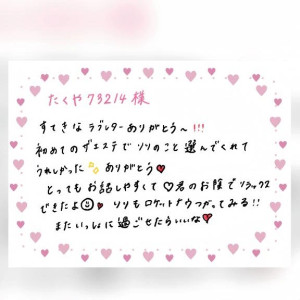 たくや73214様
すてきなラブレターありがとう〜!!!
初めてのメンエステでリリのこと選んでくれて
うれしかった✨ありがとう❤
とってもお話しやすくて♡君のお陰でリラックス
できたよ☺♡リリもロケットナウつかってみる!!
またいっしょに過ごせたらいいな❤